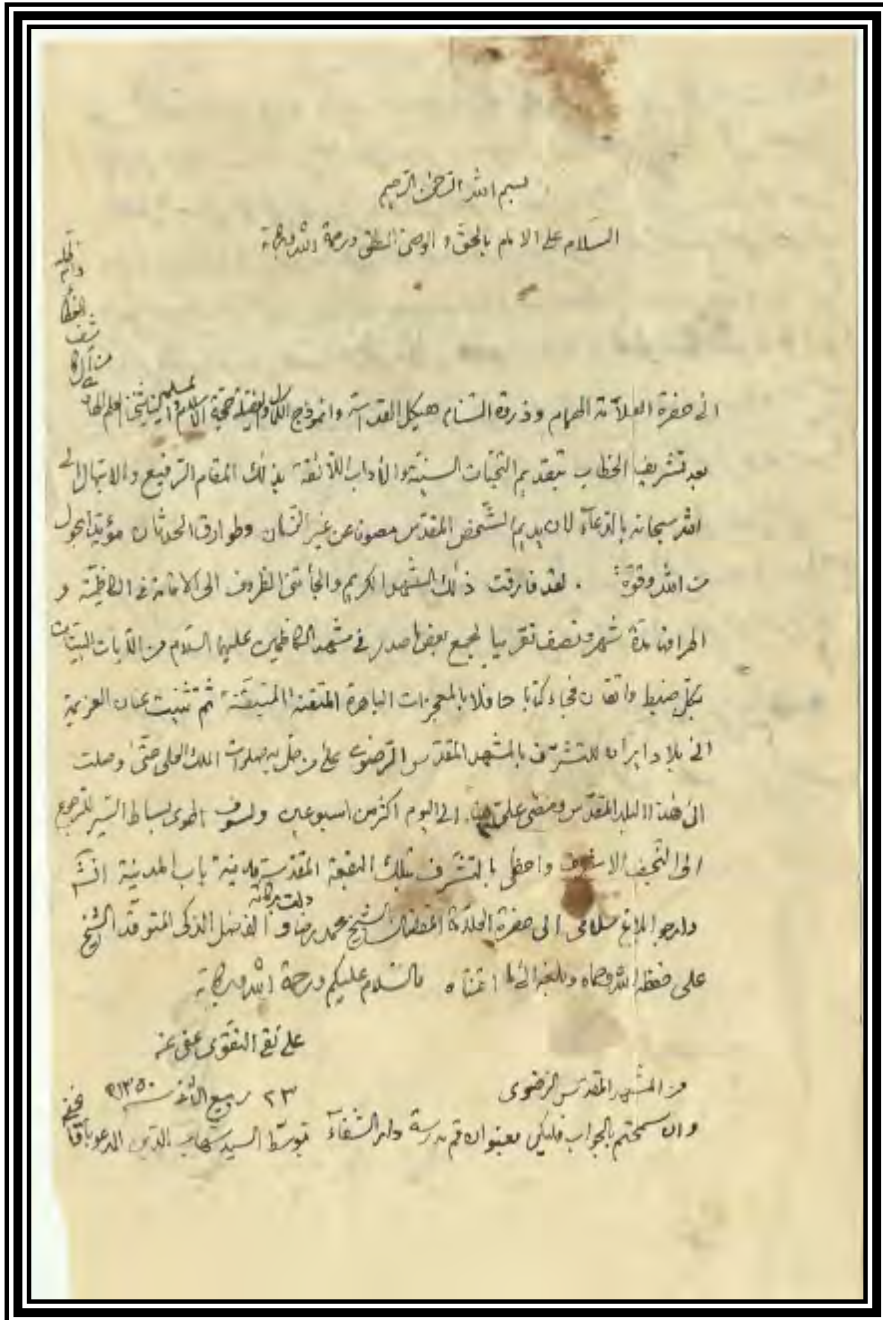 بسم الله الرحمن الرحيم
السلام على الامام بالحق و الوصي المطلق ورحمة الله وبركاته
الى حضرة العلامة الهمام وذروة السنام هيكل القداسة وانموذج الكمال والفضيلة حجة الاسلام والمسلمين شيخنا العلم الهادي
من آل كاشف الغطاء دام ظله
بعد تشريف الخطاب بتقديم التحيات السنية والآداب اللائقة بذلك المقام الرفيع والابتهال الى
الله سبحانه بالدعاء لان يديم الشخص المقدس مصونا عن غير الزمان وطوارق الحدثان مؤيدا بحول
من الله وقوة . لقد فارقت ذلك المشهد الكريم والجأتني الظروف الى الاقامة في الكاظمية و
اطرافها مدة شهر ونصف تقريبا لجمع بعض ما صدر في مشهد الكاظمين عليهما السلام من الآيات البينات
بكل ضبط واتقان فجاء كتابا حافلا بالمعجزات الباهرة المتقنة المتيقنة ثم ثنيت عنان العزيمة
الى بلاد ايران للتشرف بالمشهد المقدس الرضوي على من حل به صلوات الملك العلي حتى وصلت
الى هذا البلد المقدس ومضى علي هنا الى اليوم اكثر من اسبوعين ولسوف اطوي بساط السير للرجوع
الى النجف الاشرف واحظى بالتشرف بتلك البقعة المقدسة مدينة باب المدينة انشآ
وارجو ابلاغ سلامي الى حضرة العلامة المفضال الشيخ محمد رضا دامت بركاته و الفاضل الذكي المتوقد الشيخ
علي حفظه الله وحماه وبلغه الى ما اتمناه والسلام عليكم ورحمة الله وبركاته
علي نقي النقوي عفي عنه
من المشهد المقدس الرضوي
٢٣ ربيع الآخر سنة ١٣٥٠
وان سمحتم بالجواب فليكن بعنوان قم مدرسة دار الشفآء بتوسط السيد شهاب الدين المدعو بآقا نجفي